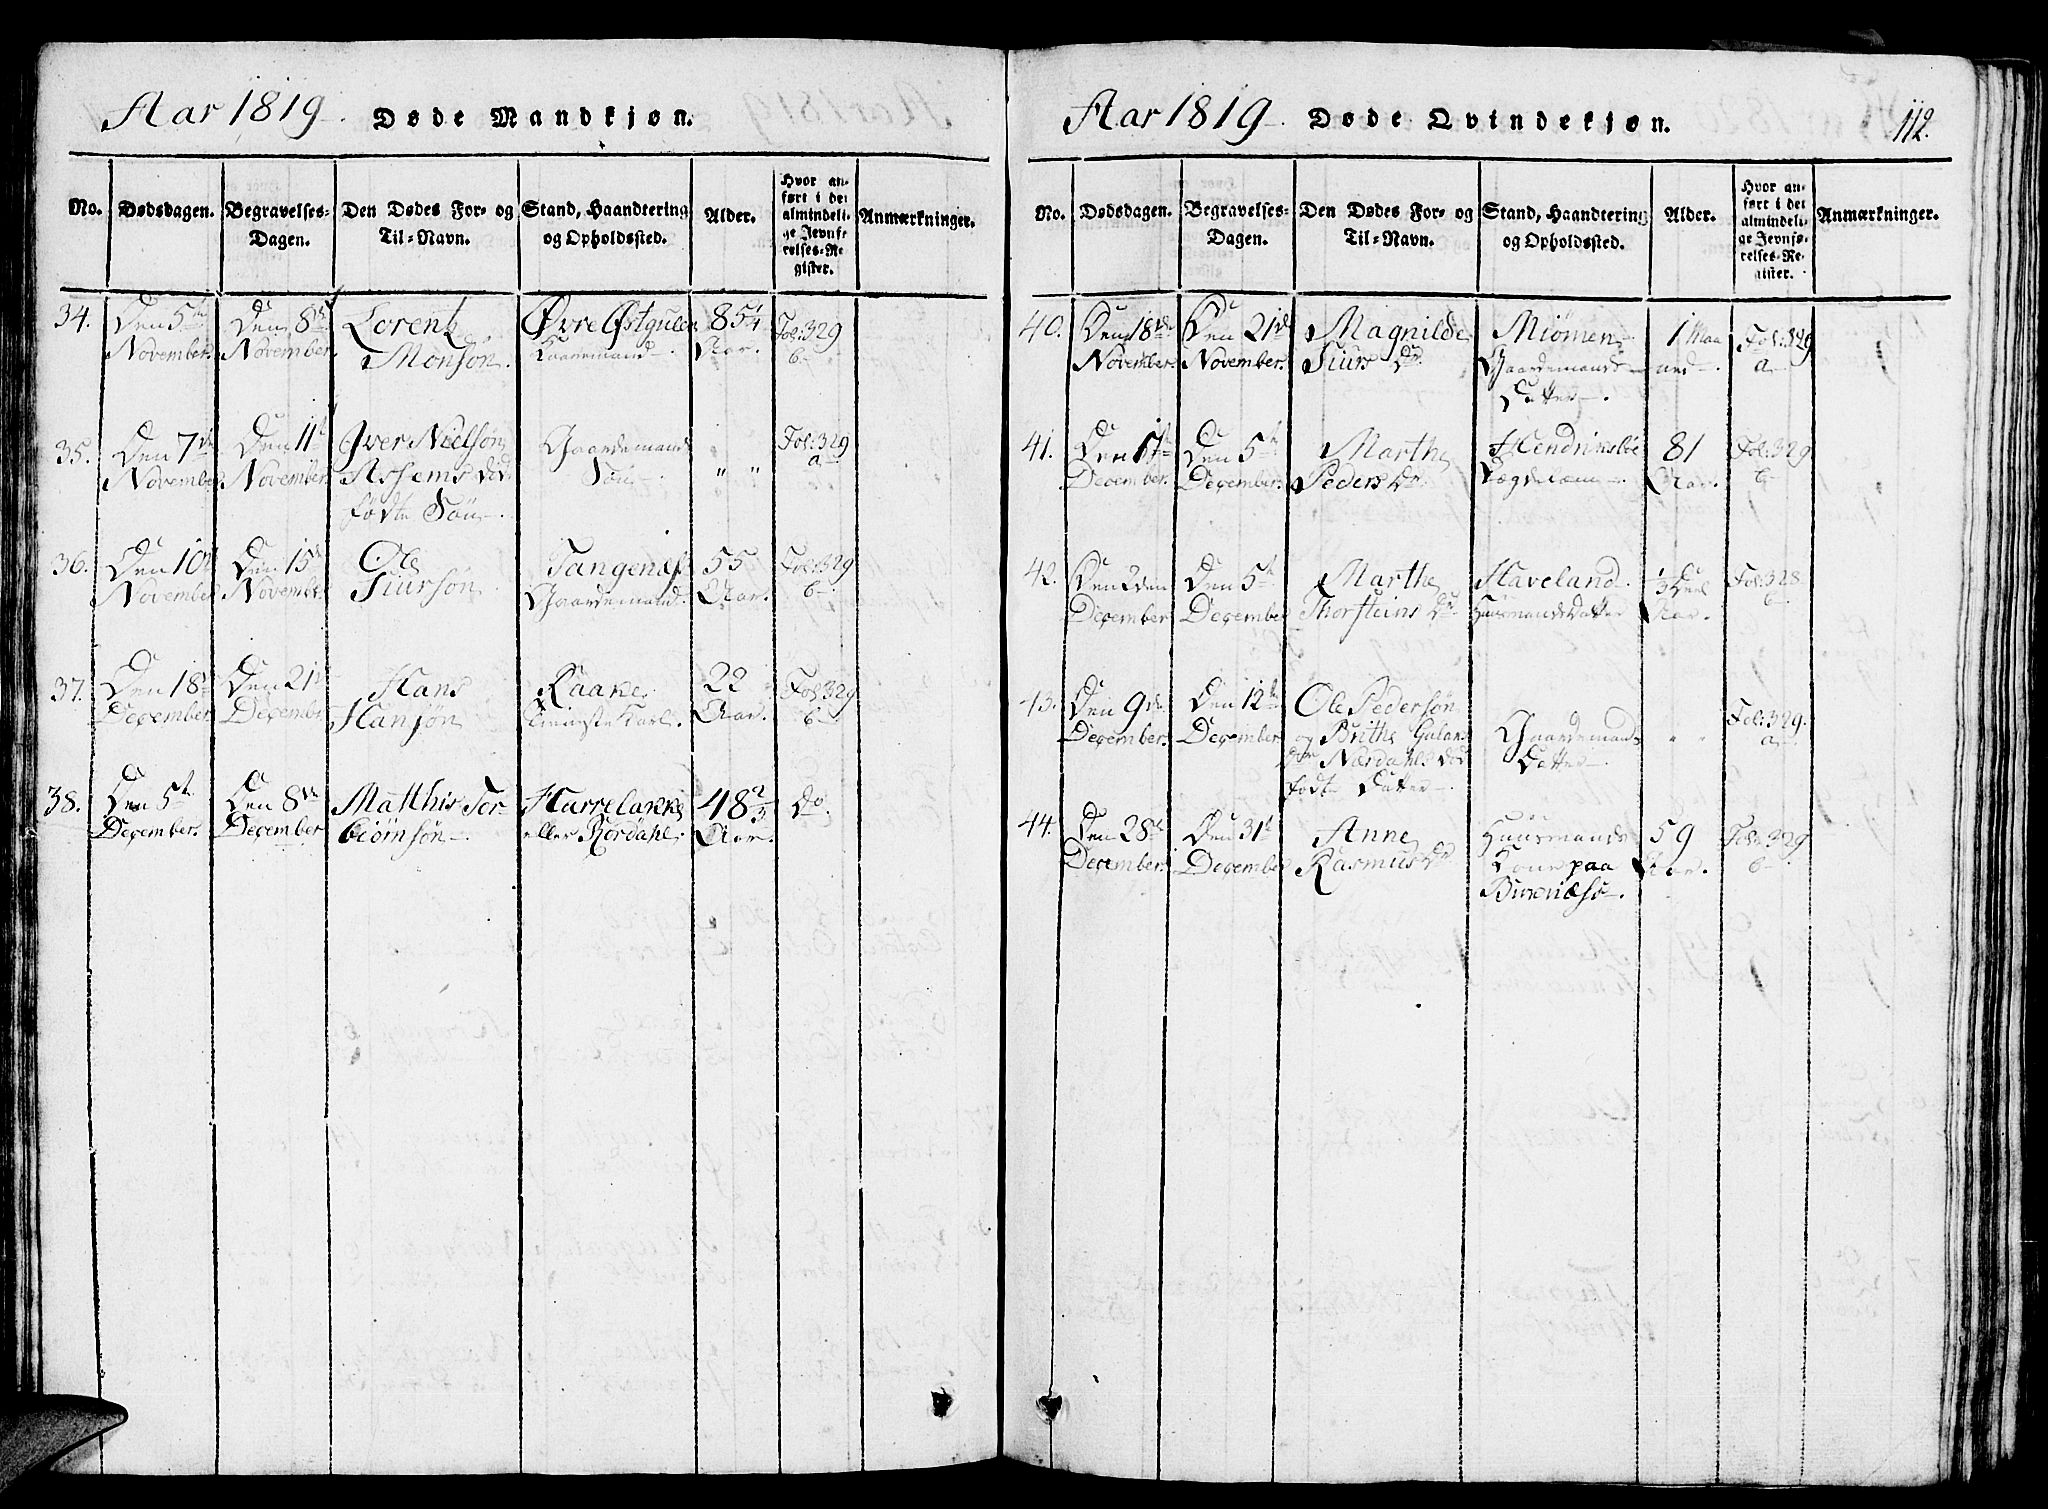 Aar 1819. Døde Mandkjøn.
No. Dødsdagen. Begravelses-Dagen. Den Dødes For- og Til-Navn. Stand, Haandtering og Opholdssted. Alder. Hvor anført i det almindelige Jevnførelses-Register. Anmærkninger.
34. Den 5te Den 8de Lorentz Øvre Østgulen 85 1/4 Fol: 329
November. November. Monsøn. Gaardemand. Aar. b
35. Den 7de Den 11te Iver Nielsøn Gaardemands Fol: 329
November November Assems død Søn " " a
fødte Søn
36. Den 10de Den 15de Ole Tangenæs 55 Fol: 329
November November Siursøn Gaardemand. Aar. b
37. Den 18de Den 21de Hans Raake 22 Fol: 329
December December Hansøn Tieneste Karl. Aar. b
38. Den 5te Den 8de Matthis Tor- Hurrelakke 48 2/3 do.
December. December biørnsøn eller Rørdahl Aar.
Aar 1819 Døde Qvindekjøn. 112.
No. Dødsdagen. Begravelses-Dagen. Den Dødes For- og Til-Navn. Stand, Haandtering og Opholdssted. Alder. Hvor anført i det almindelige Jevnførelses-Register. Anmærkninger.
40. Den 18de Den 21de Magnilde Miømen 1 Maa Fol: 329
November. November. Siurs Dr. Gaardemands ned. a
Datter.
41. Den 1te Den 5te Marthe Hendriksbøe 81 Fol: 329
December. December. Peders Dr. Lægdelem. Aar. b
42. Den 2den Den 5te Marthe Haveland. 1/3 Deel Fol: 328
December December Thorsteins Dr. Huusmands Datter Aar. b
43. Den 9de Den 12te Ole Pedersøn Fol: 329.
December. December og Brithe Gulans Gaardemands " " a
Dr Nærdahls død Datter.
fødte Datter
44. Den 28de Den 31te Anne Huusmands 59 Fol: 329
December. December Rasmus Dr Kone paa Aar. b
Birknæsø.